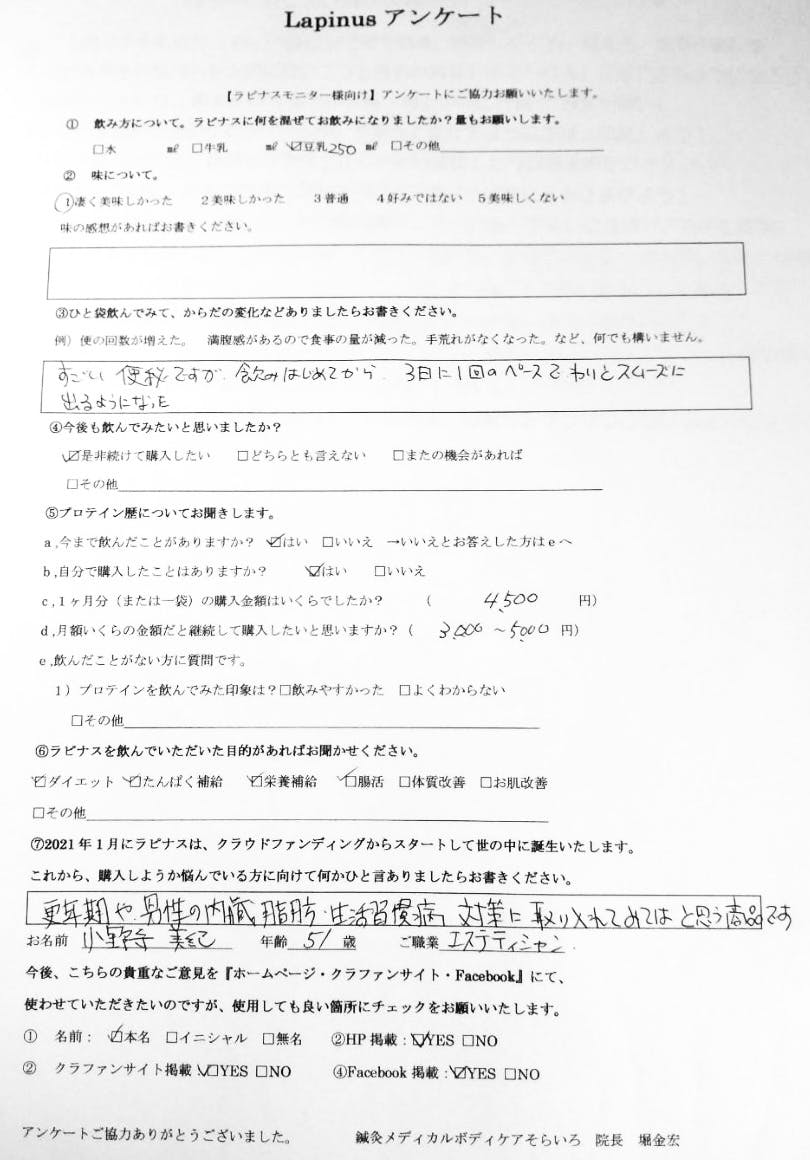 Lapinus アンケート
【ラピナスモニター様向け】アンケートにご協力お願いいたします。
① 飲み方について。ラピナスに何を混ぜてお飲みになりましたか？量もお願いします。
□水 ㎖ □牛乳 ㎖ ☑豆乳250 ㎖ □その他
② 味について。
①凄く美味しかった 2美味しかった 3普通 4好みではない 5美味しくない
味の感想があればお書きください。
③ひと袋飲んでみて、からだの変化などありましたらお書きください。
例）便の回数が増えた。 満腹感があるので食事の量が減った。手荒れがなくなった。など、何でも構いません。
すごい 便秘ですが、飲みはじめてから 3日に1回のペースで わりとスムーズに
出るようになった
④今後も飲んでみたいと思いましたか？
☑是非続けて購入したい □どちらとも言えない □またの機会があれば
□その他
⑤プロテイン歴についてお聞きします。
a,今まで飲んだことがありますか？ ☑はい □いいえ →いいえとお答えした方はeへ
b,自分で購入したことはありますか？ ☑はい □いいえ
c,1ヶ月分（または一袋）の購入金額はいくらでしたか？ （ 4,500 円）
d,月額いくらの金額だと継続して購入したいと思いますか？（ 3,000 ～5,000 円）
e,飲んだことがない方に質問です。
1）プロテインを飲んでみた印象は？□飲みやすかった □よくわからない
□その他
⑥ラピナスを飲んでいただいた目的があればお聞かせください。
☑ダイエット ☑たんぱく補給 ☑栄養補給 ☑腸活 □体質改善 □お肌改善
□その他
⑦2021年1月にラピナスは、クラウドファンディングからスタートして世の中に誕生いたします。
これから、購入しようか悩んでいる方に向けて何かひと言ありましたらお書きください。
更年期や、男性の内臓脂肪・生活習慣病 対策に 取り入れてみては と思う商品です
お名前 小野寺 美紀 年齢 51 歳 ご職業 エステティシャン
今後、こちらの貴重なご意見を『ホームページ・クラファンサイト・Facebook』にて、
使わせていただきたいのですが、使用しても良い箇所にチェックをお願いいたします。
① 名前： ☑本名 □イニシャル □無名 ②HP掲載：☑YES □NO
② クラファンサイト掲載 ☑YES □NO ④Facebook掲載：☑YES □NO
アンケートご協力ありがとうございました。 鍼灸メディカルボディケアそらいろ 院長 堀金宏